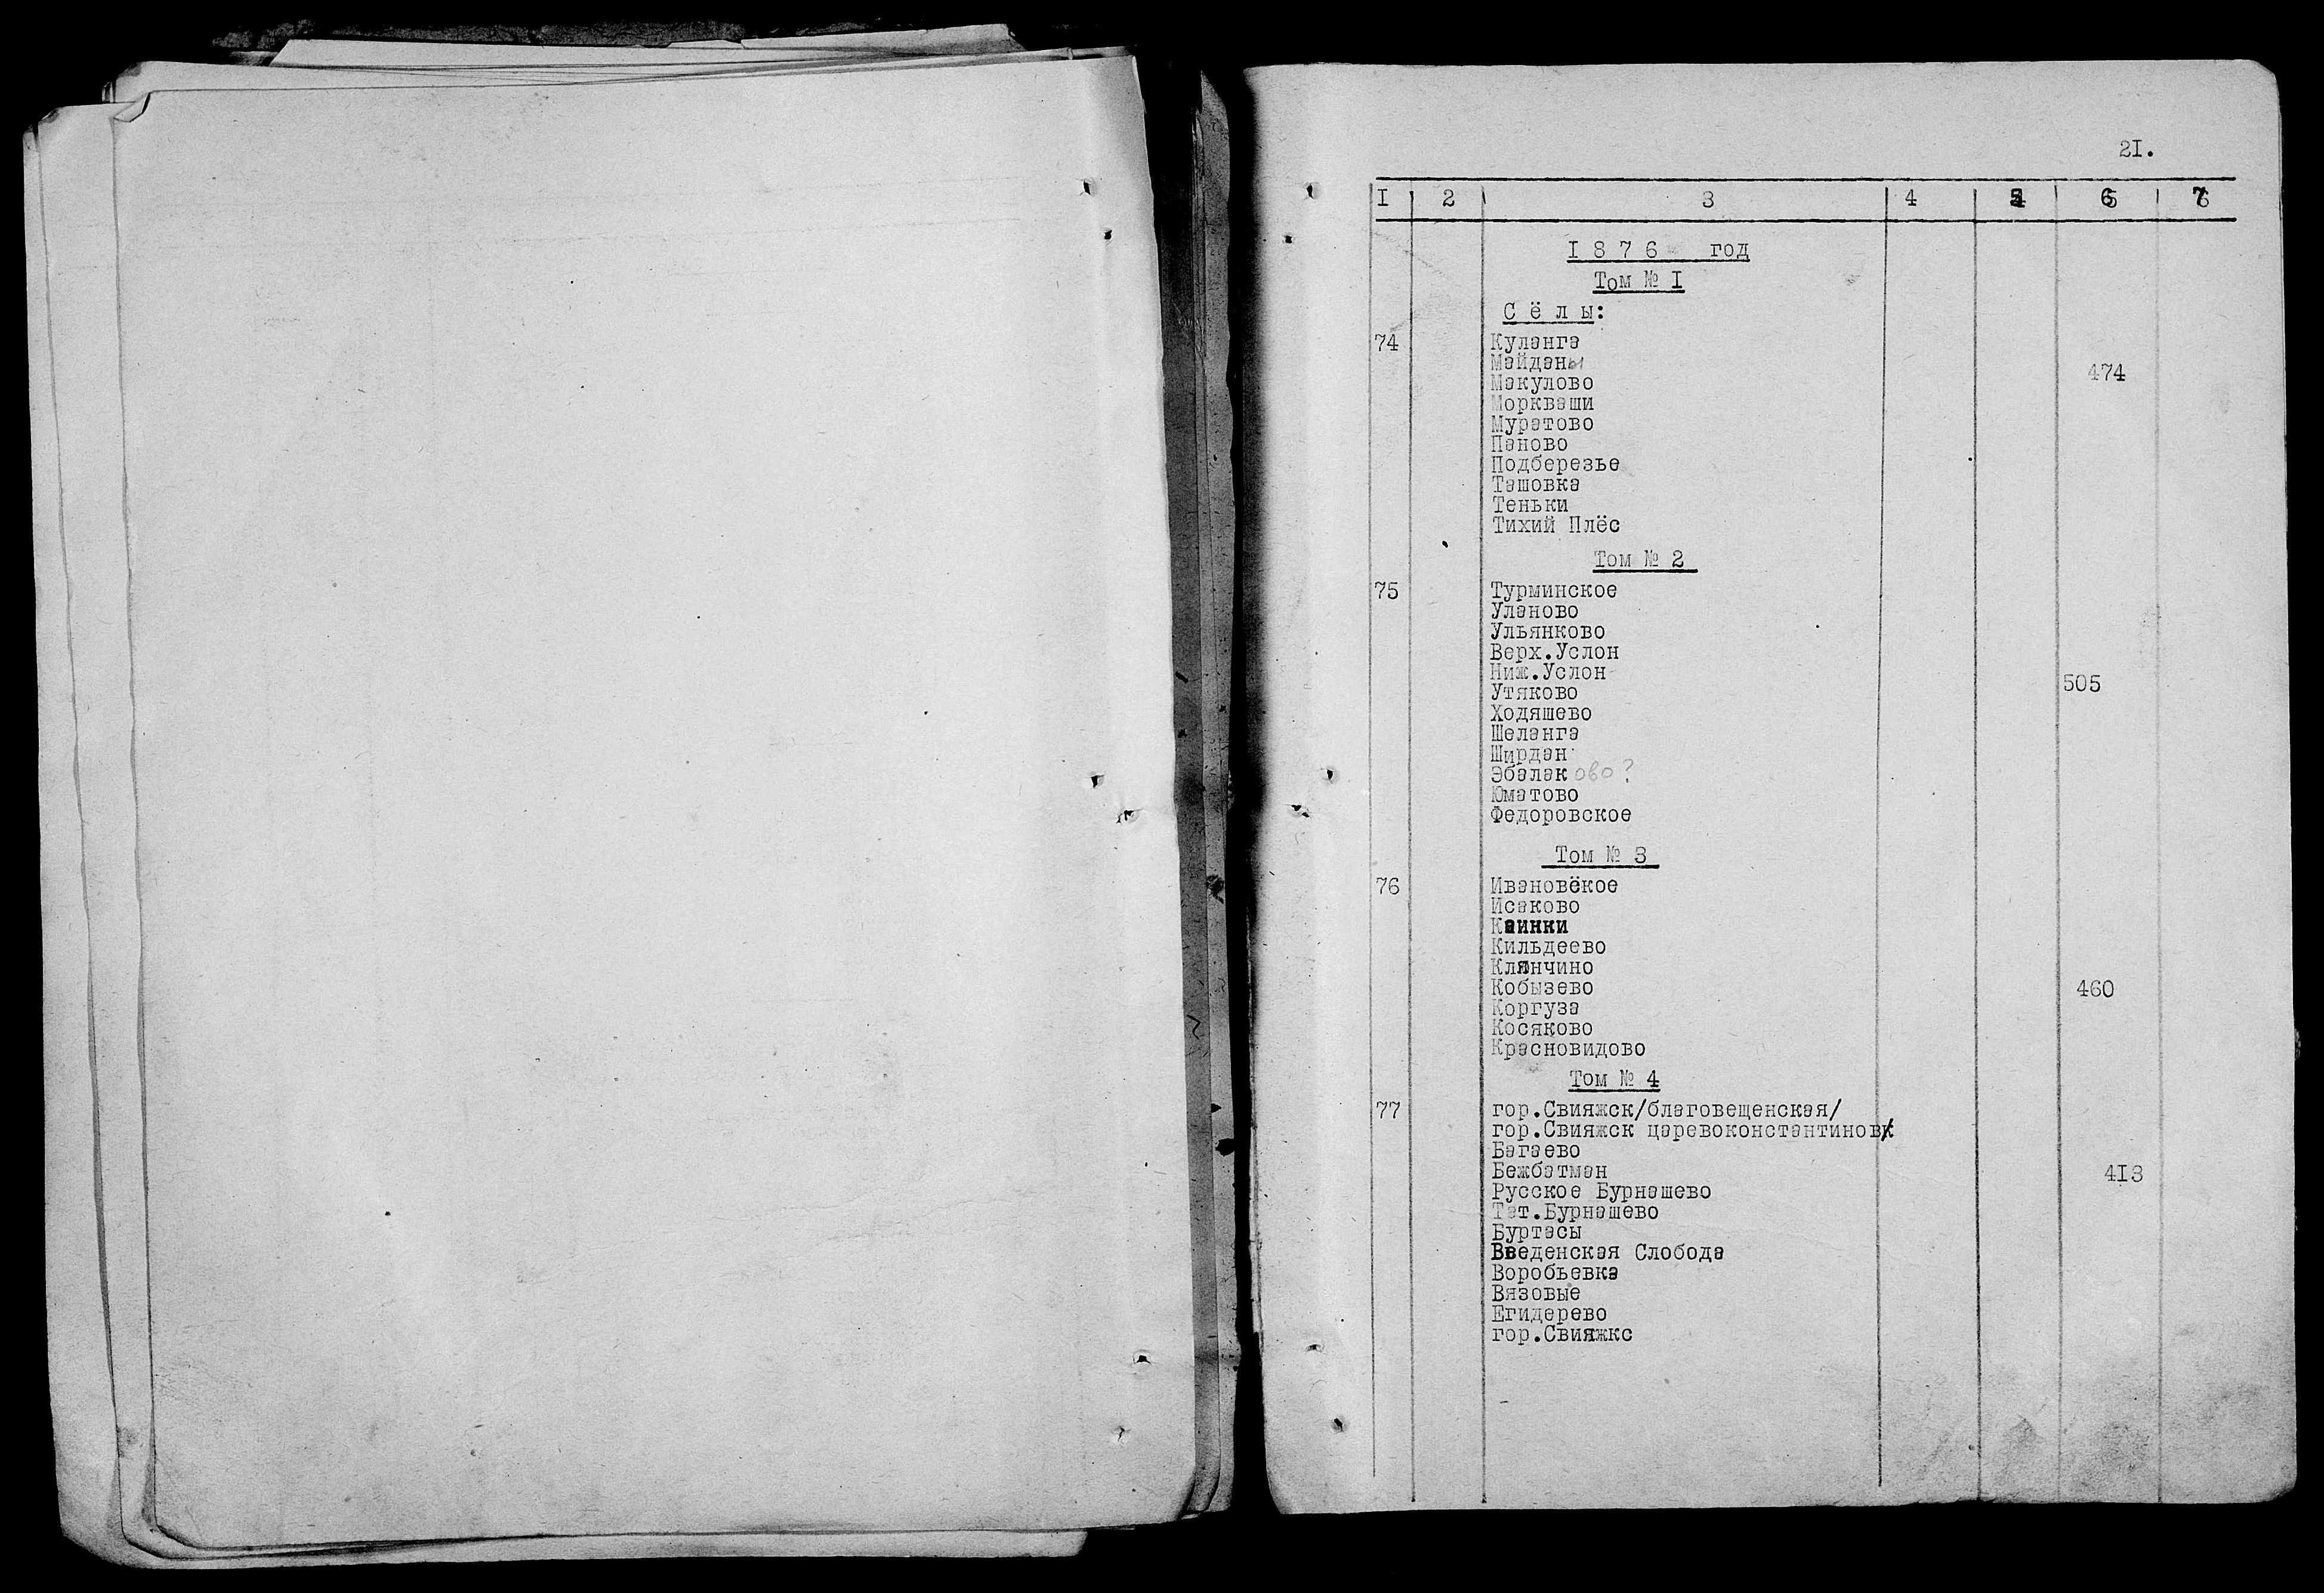 21.
I 2 3 4 5 6 7
1876 год
Том № I
Сёлы:
74 Куланга
Майданы
474
Макулово
Моркваши
Муратово
Паново
Подберезье
Ташовка
Теньки
Тихий Плёс
Том № 2
75 Турминское
Уланово
Ульянково
Верх.Услон
Ниж.Услон
505
Утяково
Ходяшево
Шеланга
Ширдан
Эбалаково?
Юматово
Федоровское
Том № 3
76 Ивановское
Исаково
Каинки
Кильдеево
Клянчино
Кобызево 460
Коргуза
Косяково
Красновидово
Том № 4
77 гор.Свияжск/благовещенская/
гор.Свияжск царевоконстантинов/
Багаево
Бежбатман 413
Русское Бурнашево
Тат.Бурнашево
Буртасы
Введенская Слобода
Воробьевка
Вязовые
Егидерево
гор.Свияжкс